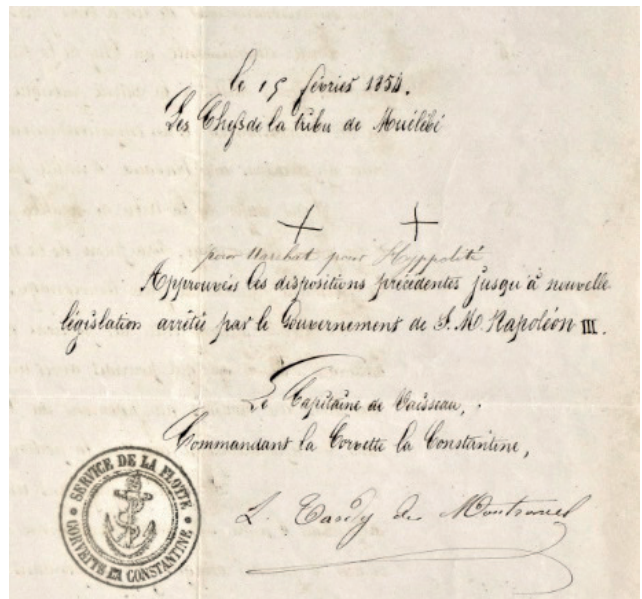 le 15 février 1854.
Les Chefs de la tribu de Muélébé
pour Uarebat pour Hyppolité
Approuvées les dispositions précédentes jusqu'à nouvelle
législation arrêtée par le Gouvernement de S. M. Napoléon III.
Le Capitaine de Vaisseau,
Commandant la Corvette la Constantine,
L. Tardy de Montravel
SERVICE DE LA FLOTTE
CORVETTE LA CONSTANTINE